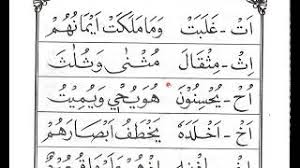 اَتْ - غَلَبَتْ وَمَا مَلَكَتْ اَيْمَانُهُمْ
اِثْ - مِثْقَالَ مَثْنٰى وَثُلٰثَ
اُحْ - يُحْسِنُوْنَ هُوَيُحْيٖ وَيُمِيْتُ
اَخْ - اَخْلَدَهٗ يَخْطَفُ اَبْصَارَهُمْ